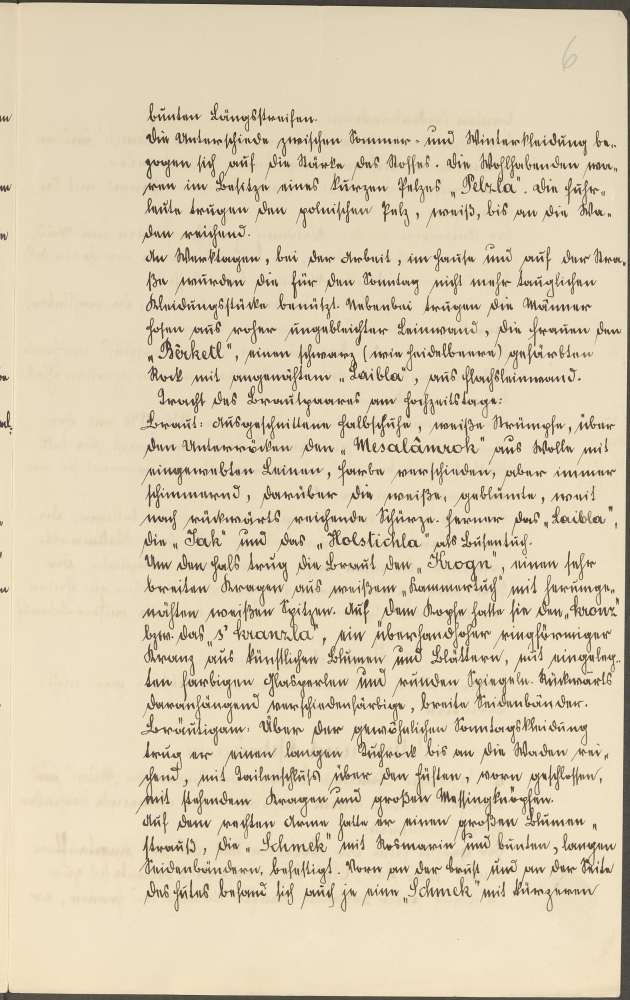 6
bunten Längsstreifen.
Die Unterschiede zwischen Sommer- und Winterkleidung be-
zogen sich auf die Stärke des Stoffes. Die Wohlhabenden wa-
ren im Besitze eines kurzen Pelzes „Pelzla". Die Fuhr-
leute trugen den polnischen Pelz, weiß, bis an die Wa-
den reichend.
An Werktagen, bei der Arbeit, im Hause und auf der Stra-
ße wurden die für den Sonntag nicht mehr tauglichen
Kleidungsstücke benützt. Nebenbei trugen die Männer
Hosen aus roher ungebleichter Leinwand, die Frauen den
„Bërketl", einen schwarz (wie Heidelbeere) gefärbten
Rock mit angenähtem „Laibla", aus Flachsleinwand.
Tracht des Brautpaares am Hochzeitstage:
Braut: Ausgeschnittene Halbschuhe, weiße Strümpfe, über
den Unterröcken den „Mesalâmrok" aus Wolle mit
eingewebten Leinen, Farbe verschieden, aber immer
schimmernd, darüber die weiße, geblümte, weit
nach rückwärts reichende Schürze. Ferner das „Laibla",
die „Jak" und das „Holstichla" als Busentuch.
Um den Hals trug die Braut den „Krogn", einen sehr
breiten Kragen aus weißem „Kammertuch" mit herumge-
nähten weißen Spitzen. Auf dem Kopfe hatte sie den „Kronz"
bzw. das „s' Kranzla", ein überhandhoher ringförmiger
Kranz aus künstlichen Blumen und Blättern, mit eingeleg-
ten farbigen Glasperlen und runden Spiegeln. Rückwärts
daranhängend verschiedenfärbige, breite Seidenbänder.
Bräutigam: Über der gewöhnlichen Sonntagskleidung
trug er einen langen Tuchrock bis an die Waden rei-
chend, mit Tailenschluss über den Hüften, vorn geschlossen,
mit stehendem Kragen und großen Messingknöpfen.
Auf dem rechten Arme hatte er einen großen Blumen-
strauß, die „Schmek" mit Rosmarin und bunten, langen
Seidenbändern, befestigt. Vorn an der Brust und an der Seite
des Hutes befand sich auch je eine „Schmek" mit kürzeren